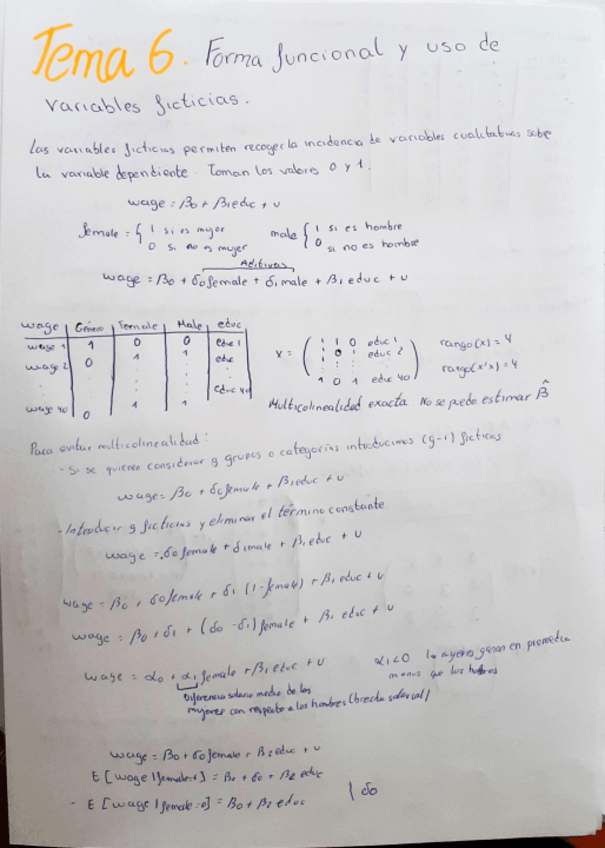 Tema 6. Forma funcional y uso de
variables ficticias.
Las variables ficticias permiten recoger la incidencia de variables cualitativas sobre
la variable dependiente. Toman los valores 0 y 1.
wage = β0 + β1educ + u
female = { 1 si es mujer
0 si no es mujer
male { 1 si es hombre
0 si no es hombre
Aditivas
wage = β0 + δ0female + δ1male + β1educ + u
wage | Género | Female | Male | educ
wage 1 | 1 | 0 | 0 | educ 1
wage 2 | 0 | 1 | 1 | educ
educ 40
wage 40 | 0 | 1 | 1
X = ( 1 1 0 educ 1
1 0 1 educ 2
1 0 1 educ 40 )
rango(x) = 4
rango(x'x) = 4
Multicolinealidad exacta. No se puede estimar β̂
Para evitar multicolinealidad:
- Si se quieren considerar g grupos o categorías introducimos (g-1) ficticias
wage = β0 + δ0female + β1educ + u
- Introducir g ficticias y eliminar el término constante.
wage = δ0female + δ1male + β1educ + u
wage = β0 + δ0female + δ1(1-female) + β1educ + u
wage = β0 + δ1 + (δ0 - δ1)female + β1educ + u
wage = α0 + α1female + β1educ + u
α1<0 ganan en promedio
menos que los hombres
Diferencia salario medio de las
mujeres con respecto a los hombres (brecha salarial)
wage = β0 + δ0female + β2educ + u
E[wage | female=1] = β0 + δ0 + β2educ
- E[wage | female=0] = β0 + β2educ
| δ0